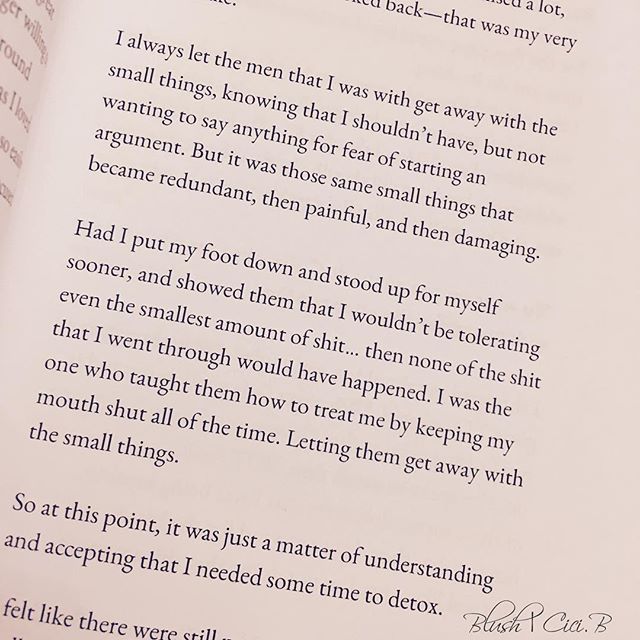 a lot,
back—that was my very
I always let the men that I was with get away with the
small things, knowing that I shouldn't have, but not
wanting to say anything for fear of starting an
argument. But it was those same small things that
became redundant, then painful, and then damaging.
Had I put my foot down and stood up for myself
sooner, and showed them that I wouldn't be tolerating
even the smallest amount of shit... then none of the shit
that I went through would have happened. I was the
one who taught them how to treat me by keeping my
mouth shut all of the time. Letting them get away with
the small things.
So at this point, it was just a matter of understanding
and accepting that I needed some time to detox.
felt like there were still
Blush | Cici.B